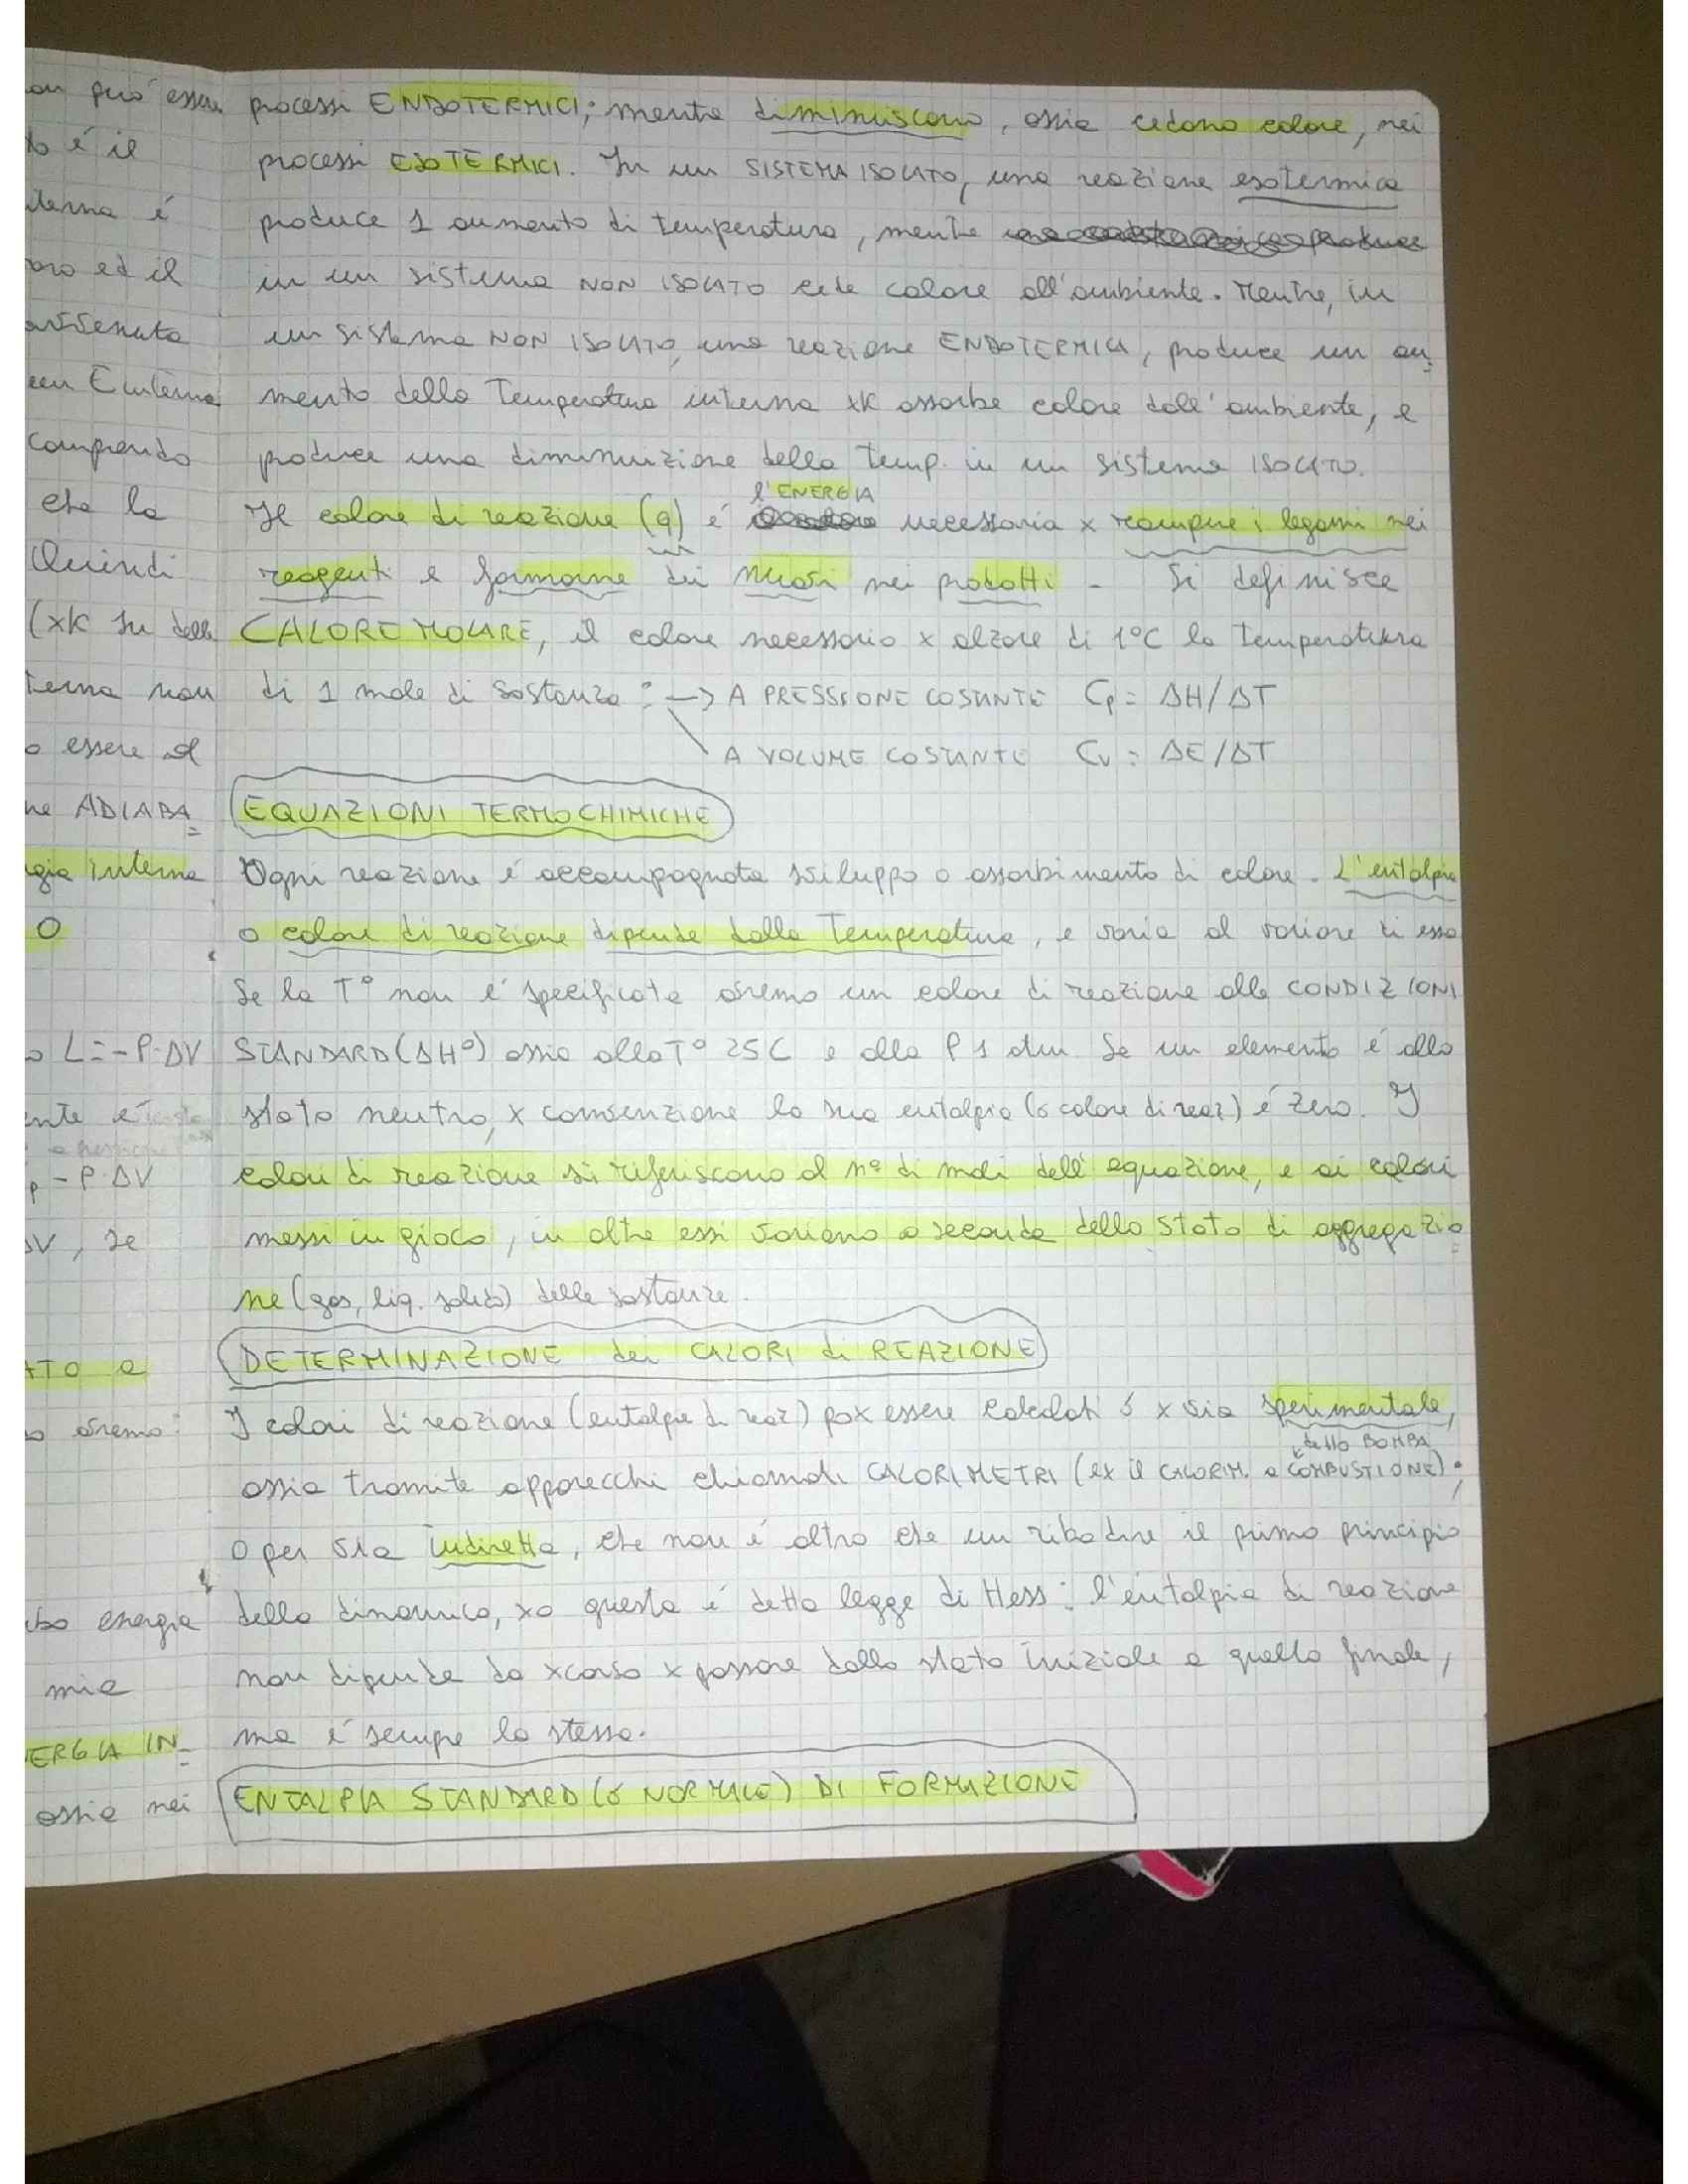 on può essere
to è il
iterna è
oro ed il
avvenuta
un E interna
comprendo
che la
Quindi
(xk su della
terna non
o essere al
ne ADIABA
gia interna
0
o L=-P·ΔV
ente è
p - P·ΔV
ΔV, se
ATO a
o avremo:
energia
mia
ERGIA IN_
ossia nei
processi ENDOTERMICI; mentre diminuiscono, ossia cedono calore, nei
processi ESOTERMICI. In un SISTEMA ISOLATO, una reazione esotermica
produce 1 aumento di temperatura, mentre
in un sistema NON ISOLATO cede calore all'ambiente. Mentre, in
un sistema NON ISOLATO, una reazione ENDOTERMICA, produce un au=
mento della Temperatura interna xk assorbe calore dall'ambiente, e
produce una diminuizione della temp. in un sistema ISOLATO.
l'ENERGIA
Il calore di reazione (q) é necessaria x rompere i legami nei
reagenti e formarne dei nuovi nei prodotti - Si definisce
CALORE MOLARE, il calore necessario x alzare di 1°C la Temperatura
di 1 mole di sostanza: -> A PRESSIONE COSTANTE Cp = ΔH/ΔT
A VOLUME COSTANTE Cv = ΔE/ΔT
EQUAZIONI TERMOCHIMICHE
Ogni reazione é accompagnata sviluppo o assorbimento di calore. L'entalpia
o calore di reazione dipende dalla Temperatura, e varia al variare di essa
Se la T° non é specificata avremo un calore di reazione alle CONDIZIONI
STANDARD (ΔH°) ossia alla T° 25C e alla P 1 atm. Se un elemento é allo
stato neutro, x convenzione la sua entalpia (o calore di reaz) é zero. I
calori di reazione si riferiscono al n° di moli dell'equazione, e ai calori
messi in gioco, in oltre essi variano a seconda dello stato di aggregazio=
ne (gas, liq. solido) delle sostanze.
DETERMINAZIONE dei CALORI di REAZIONE
I calori di reazione (entalpie di reaz) pox essere calcolati x via sperimentale,
detto BOMBA
ossia tramite apparecchi chiamati CALORIMETRI (ex il CALORIM. a COMBUSTIONE);
O per via indiretta, che non é altro che un ribadire il primo principio
della dinamica, xo questa é detta legge di Hess: l'entalpia di reazione
non dipende da xcorso x passare dallo stato iniziale a quello finale,
ma é sempre la stessa.
ENTALPIA STANDARD (o NORMALE) DI FORMAZIONE